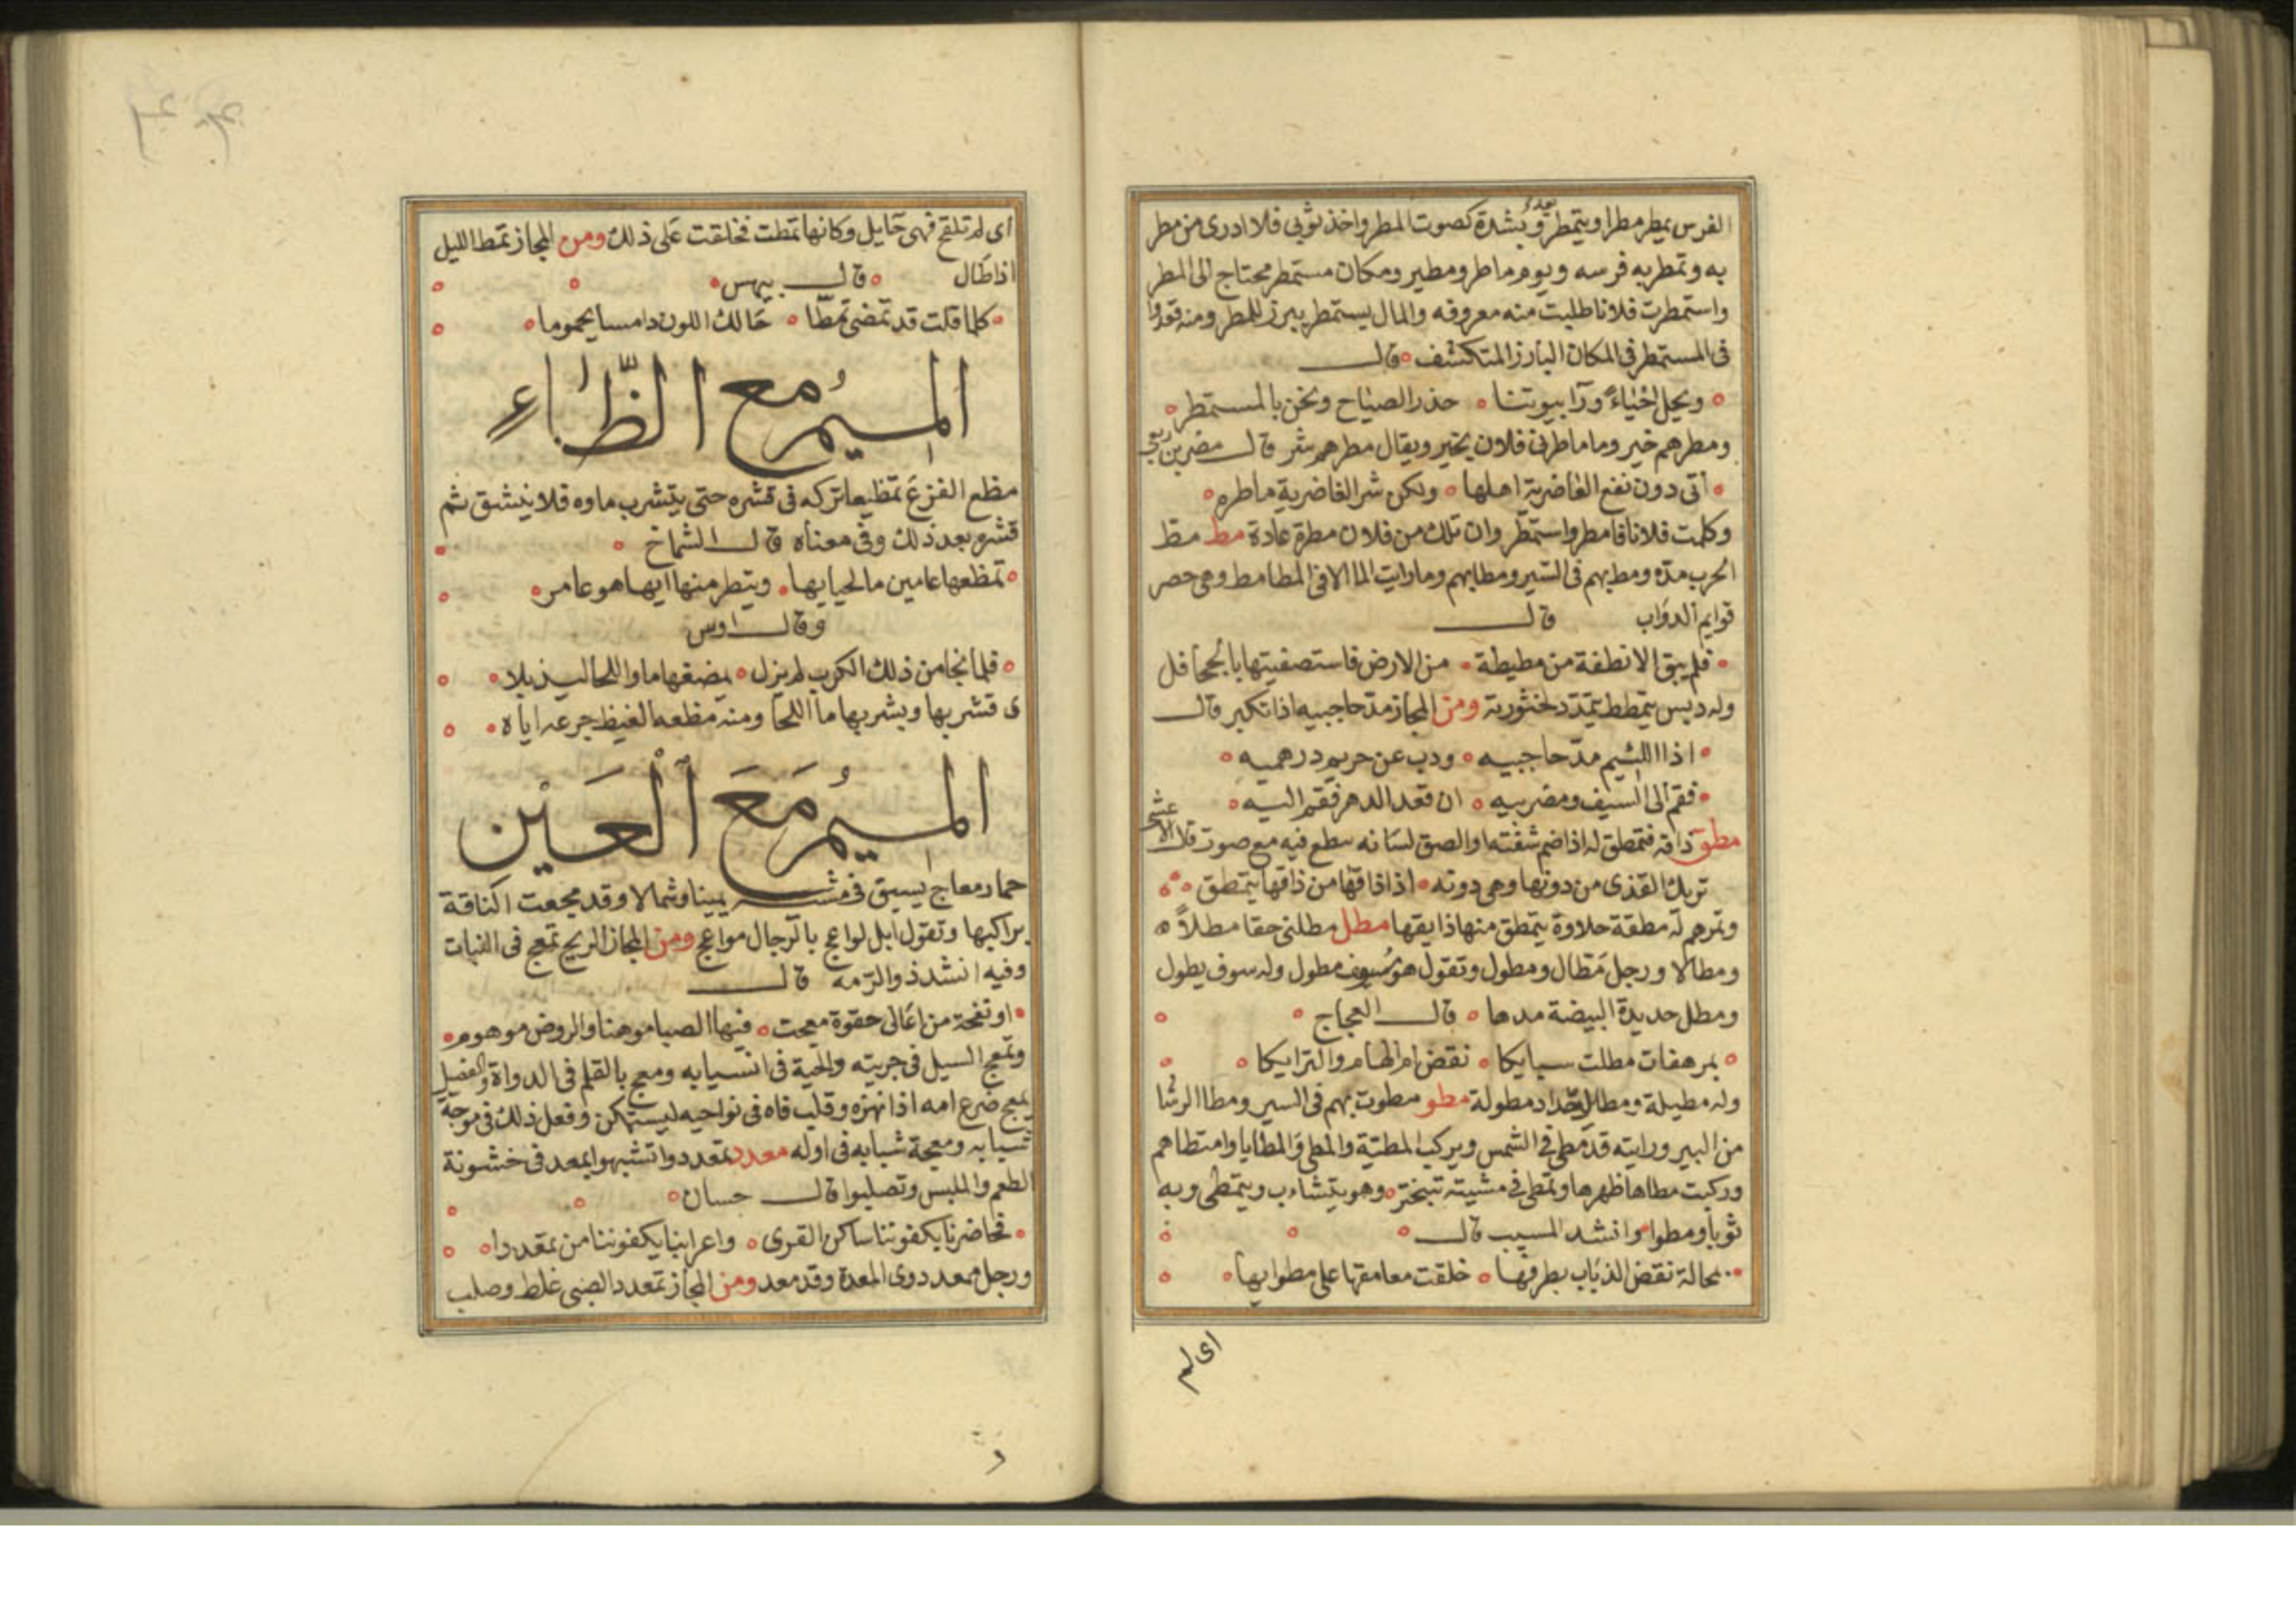 الفرس يمطر مطرا ويتمطر وبشدة كصوت المطر واخذ ثوبى فلا ادرى من مطر
به وتمطر به فرسه ويوم ماطر ومطير ومكان مستمطر محتاج الى المطر
واستمطرت فلانا طلبت منه معروفه والمال يستمطر يبرز للمطر ومنه قعدوا
فى المستمطر فى المكان البارز المتكشف قال
ويحل احياء ورآ بيوتنا حذر الصياح ونحن بالمستمطر
ومطرهم خير وما ماطرنى فلان بخير ويقال مطرهم شر قال مضرس بن ربعى
اتى دون نفع الغاضرية اهلها ولكن شر الغاضرية ماطره
وكلمت فلانا فامطر واستمطر وان تلك من فلان مطرة عادة مط مط
الحرب مده ومط بهم فى السير ومطابهم وما رايت الما الا فى المطامط وهى حصر
قوايم الدواب قال
فلم يبق الا نطفة من مطيطة من الارض فاستصفيتها بالجحافل
وله دبس يتمطط يتمدد لخثورته ومن المجاز مد حاجبيه اذا تكبر قال
اذا اللئيم مد حاجبيه وذب عن حريم درهميه
فقم الى السيف ومضربيه ان قعد الدهر فقم اليه
مطق ذاقه فتمطق له اذا ضم شفته او الصق لسانه بنطع فيه مع صوت قال الاعشى
تريك القذى من دونها وهى دونه اذا ذاقها من ذاقها يتمطق
وتمرهم له مطقة حلاوة يتمطق منها ذايقها مطل مطلنى حقا مطلا
ومطالا ورجل مطال ومطول وتقول هو مسوف مطول وله سوف يطول
ومطل حديدة البيضة مدها قال العجاج
بمرهفات مطلت سبايكا نقض ام الهام والترايكا
وله مطيلة ومطايل حداد مطولة مطو مطوت بهم فى السير ومطا الرشا
من البير ورايته قد مطى فى الشمس ويركب المطية والمطى والمطايا وامتطاهم
وركبت مطاها ظهرها وتمطى فى مشيته تبختر وهو يتشاءب ويتمطى وبه
ثوبا ومطوا وانشد المسيب قال
بمحالة نقض الذباب بطرفها خلقت معاقمها على مطوايها
اى لم
اى لم تلقح فهى حايل وكانها تمطت فخلقت على ذلك ومن المجاز تمط الليل
اذا طال قال بيهس
كلما قلت قد تمضى تمطا حالك اللون دامسا يحموما
الميم مع الظاء
مظع الفزع تمظيعا تركه فى قشره حتى يتشرب ماوه فلا ينشق ثم
قشره بعد ذلك وفى معناه قال الشماخ
تمظعها عامين ما لحيايها وينظر منها ايها هو غامر
وقال اوس
فلما نجا من ذلك الكرب لم يزل يمضعها ما و اللحا ليذبلا
ى قشر بها ويشربها ما اللحا ومنه مظعه الغيظ جرعه اياه
الميم مع العين
حمار معاج يسبق فى مشيه يمينا وشمالا وقد معجت الناقة
براكبها وتقول ابل لواعج بالرجال مواعج ومن المجاز الريح تمعج فى النبات
وفيه انشد ذو الرمه قال
او نفحة من اعالى حقوة معجت فيها الصبا موهنا والروض موهوم
وتمعج السيل فى جريته والحية فى انسيابه ومعج بالقلم فى الدواة والفصيل
يمعج ضرع امه اذا نهزه وقلب فاه فى نواحيه ليستمكن وفعل ذلك فى موجة
شبابه ومعجة شبابه فى اوله معدد تمعددوا تشبهوا بمعد فى خشونة
الطعم والملبس وتصلبوا قال حسان
فحاضرنا يكفوننا ساكن القرى واعرابنا يكفوننا من تمعددا
ورجل ممعد دوى المعدة وقد معد ومن المجاز تمعدد الصبى غلظ وصلب